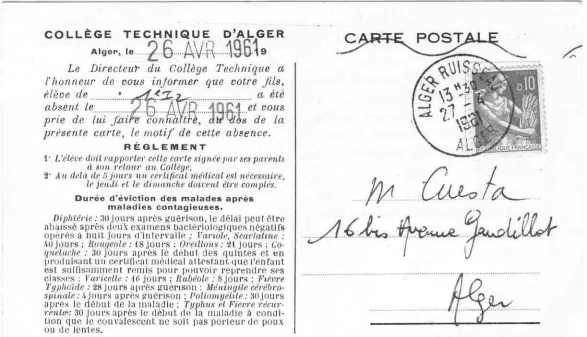 COLLÈGE TECHNIQUE D'ALGER
Alger, le 26 AVR 1961 9
Le Directeur du Collège Technique a
l'honneur de vous informer que votre fils,
élève de a été
absent le 26 AVR 1961 et vous
prie de lui faire connaître, au dos de la
présente carte, le motif de cette absence.
RÉGLEMENT
1° L'élève doit rapporter cette carte signée par ses parents
à son retour au Collège,
2° Au delà de 5 jours un certificat médical est nécessaire,
le jeudi et le dimanche doivent être comptés.
Durée d'éviction des malades après
maladies contagieuses.
Diphtérie : 30 jours après guérison, le délai peut être
abaissé après deux examens bactériologiques négatifs
opérés à huit jours d'intervalle ; Variole, Scarlatine :
40 jours ; Rougeole : 18 jours ; Oreillons : 21 jours ; Co-
queluche : 30 jours après le début des quintes et en
produisant un certificat médical attestant que l'enfant
est suffisamment remis pour pouvoir reprendre ses
classes ; Varicelle : 16 jours ; Rubéole : 8 jours ; Fièvre
Typhoïde : 28 jours après guérison ; Méningite cérébro-
spinale : 4 jours après guérison ; Poliomyélite : 30 jours
après le début de la maladie ; Typhus et Fièvre récur-
rente : 30 jours après le début de la maladie à condi-
tion que le convalescent ne soit pas porteur de poux
ou de lentes.
CARTE POSTALE
ALGER RUISSEAU
13 H 30
27 - 4
1961
ALGER
0,10
M Cuesta
16 bis Avenue Gaudillot
Alger